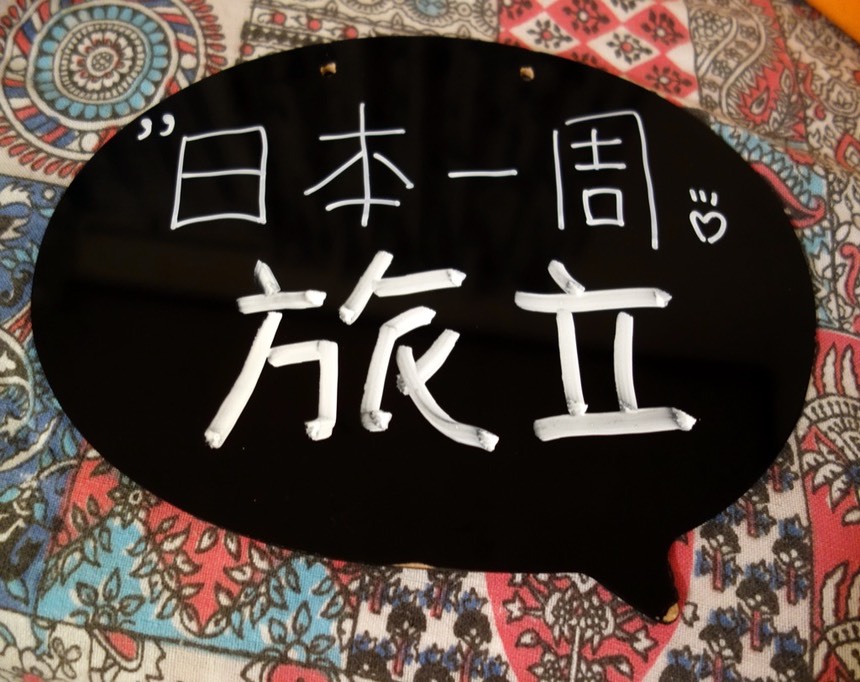 ”日本一周
旅立